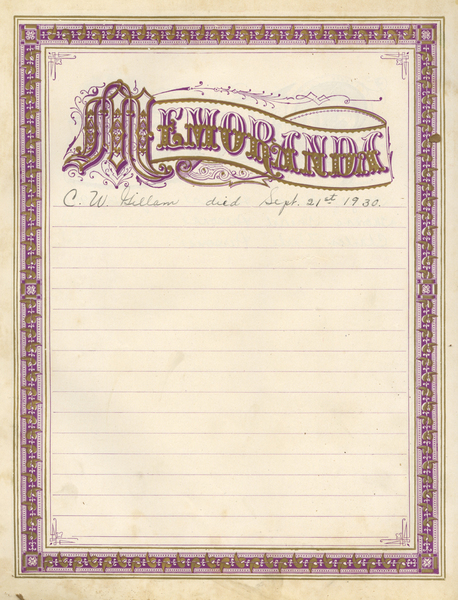 MEMORANDA
C. W. Gillam died Sept. 21st 1930.